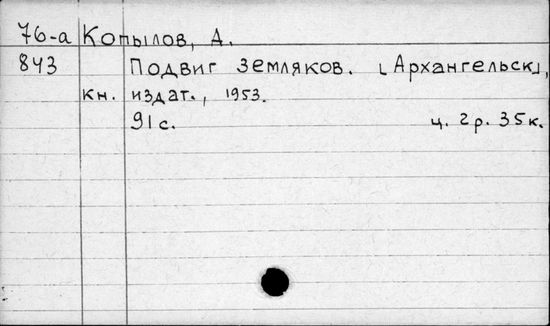 76-а Копылов, А.
843 Подвиг земляков. [Архангельск],
кн. издат., 1953.
91 с. ц. 2р. 35к.